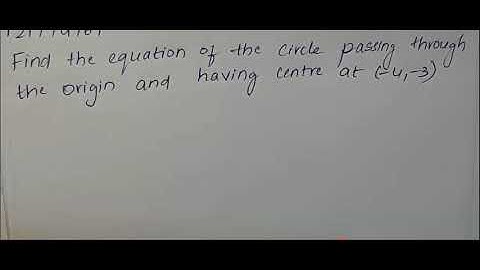 Find the equation of the circle passing through
the origin and having centre at (-4,-3)